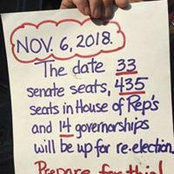 NOV. 6, 2018.
The date 33
senate seats, 435
seats in House of Rep's
and 14 governorships
will be up for re-election.
Prepare for this!